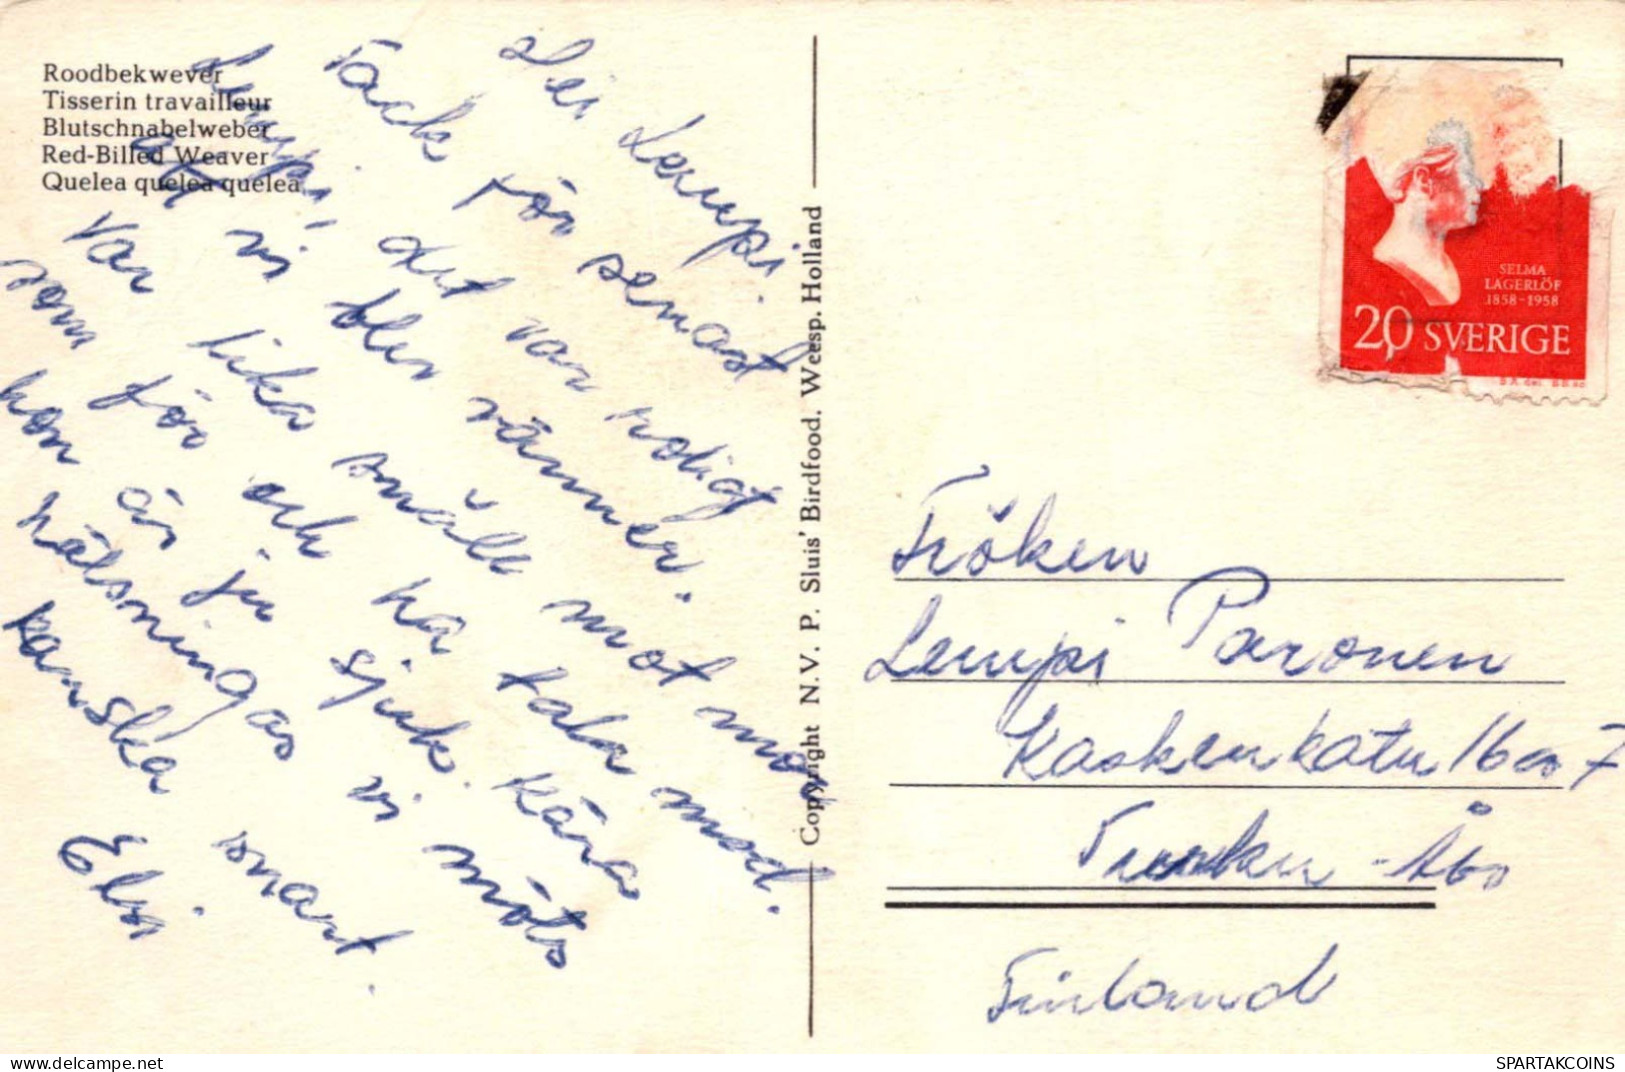 Roodbekwever
Tisserin travailleur
Blutschnabelweber
Red-Billed Weaver
Quelea quelea quelea
Hei Lempi.
Tack för senast
Lempi, det var roligt
att vi blev vänner.
var lika snäll mot mor
som för och ha tala med.
hon är ju sjuk. kära
hälsningar vi möts
kanska snart.
Elvi.
Copyright N.V. P. Sluis' Birdfood. Weesp. Holland
SELMA
LAGERLÖF
1858-1958
20 SVERIGE
Fröken
Lempi Paronen
Kaskenkatu 16 as 7
Turku - Åbo
Finland
SPARTAKCOINS